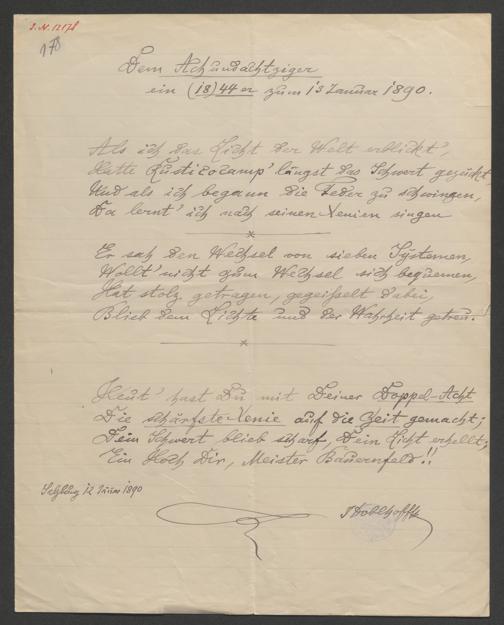 I.N. 12178
178
Dem Achundachtziger
ein (18)44er zum 13 Januar 1890.
Als ich das Licht der Welt erblickt',
Hatte Rusticocamp' längst das Schwert gezückt,
Und als ich begann die Feder zu schwingen,
Da lernt' ich nach seinen Xenien singen
Er sah den Wechsel von sieben Systemen,
Wollt' nicht zum Wechsel sich bequemen,
Hat stolz getragen, gegeißelt dabei,
Blieb dem Lichte und der Wahrheit getreu!
Heut' hast Du mit Deiner Doppel-Acht
Die schärfste Xenie auf die Zeit gemacht;
Dein Schwert blieb scharf, Dein Licht erhellt;
Ein Hoch Dir, Meister Bauernfeld!!
12 1890